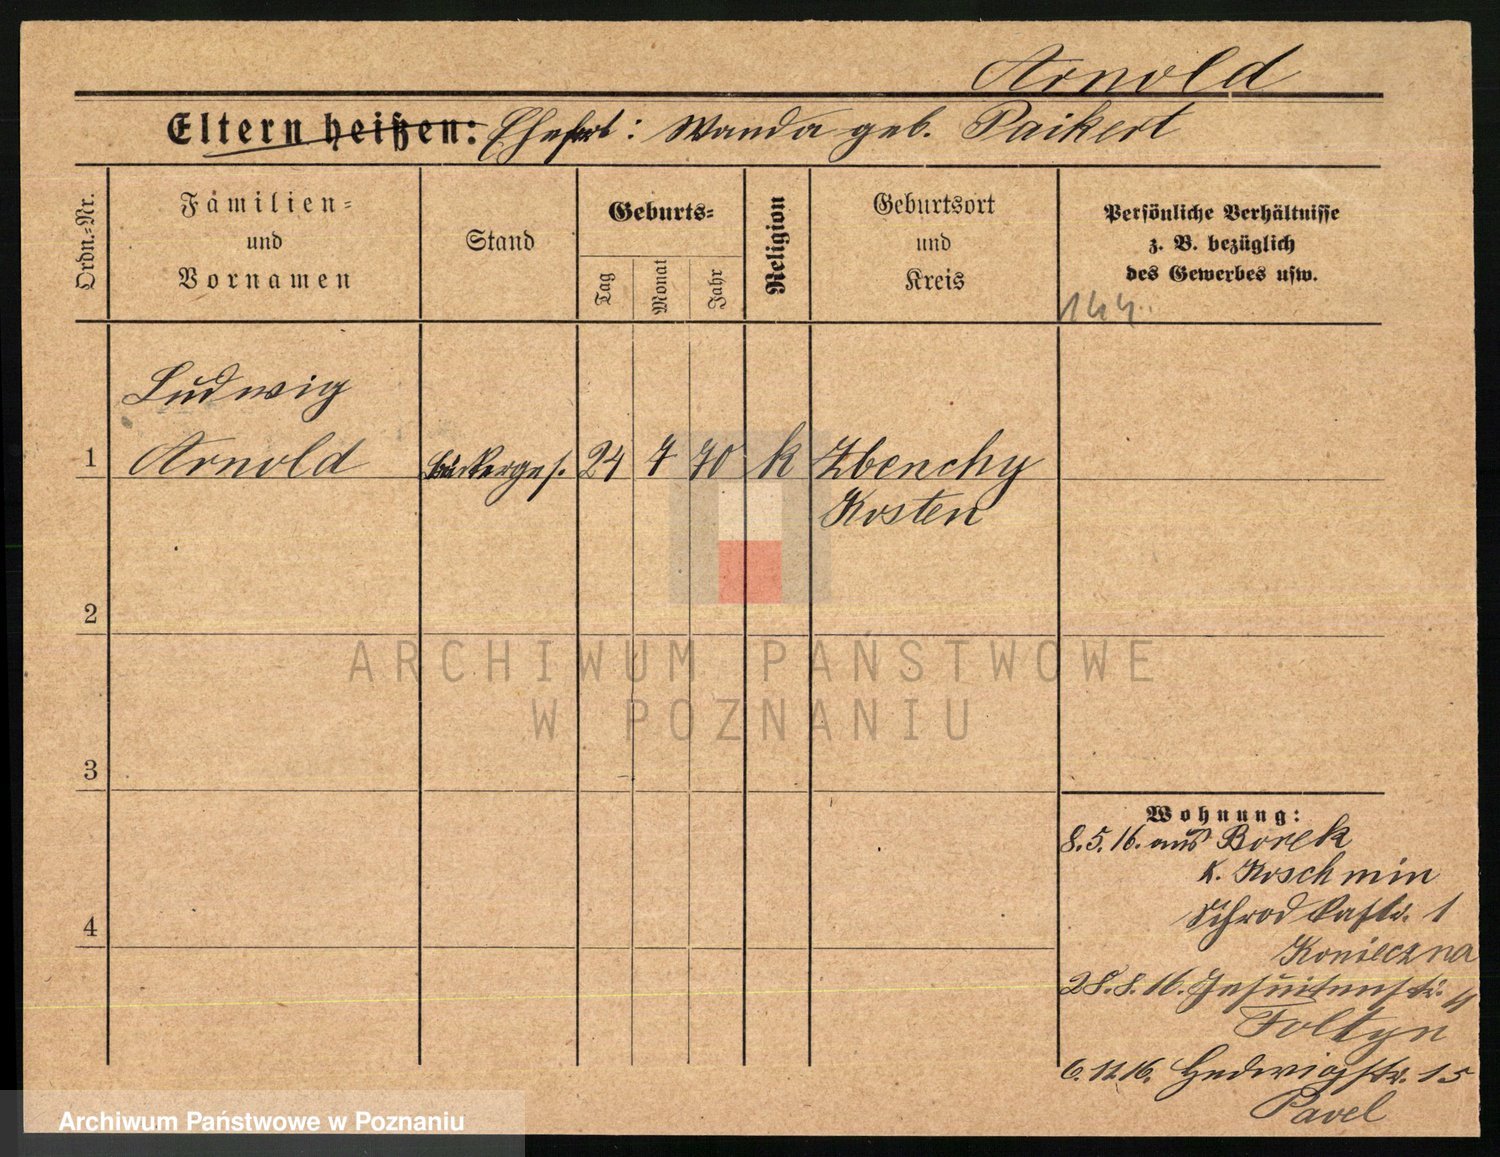 Arnold
Eltern heißen: Ehefrt: Wanda geb. Paikert
Ordn.-Nr.
Familien-
und
Vornamen
Stand
Geburts-
Tag
Monat
Jahr
Religion
Geburtsort
und
Kreis
Persönliche Verhältnisse
z. B. bezüglich
des Gewerbes usw.
144.
Ludwig
1 Arnold Bäckerges. 24 7 70 k Zbenchy
Kosten
2
3
4
Wohnung:
8.5.16. aus Borek
K. Koschmin
1
Konieczna
28.8.16. Jesuitenstr. 4
Foltyn
6.12.16. Hedwigstr. 15
Pavel
ARCHIWUM PAŃSTWOWE
W POZNANIU
Archiwum Państwowe w Poznaniu